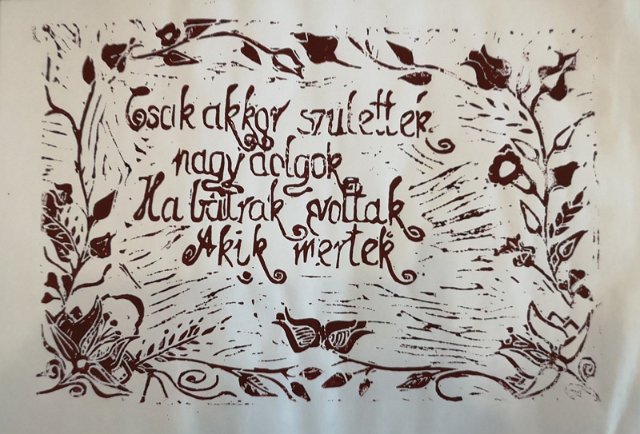 Csak akkor születtek
nagy dolgok
Ha bátrak voltak
Akik mertek